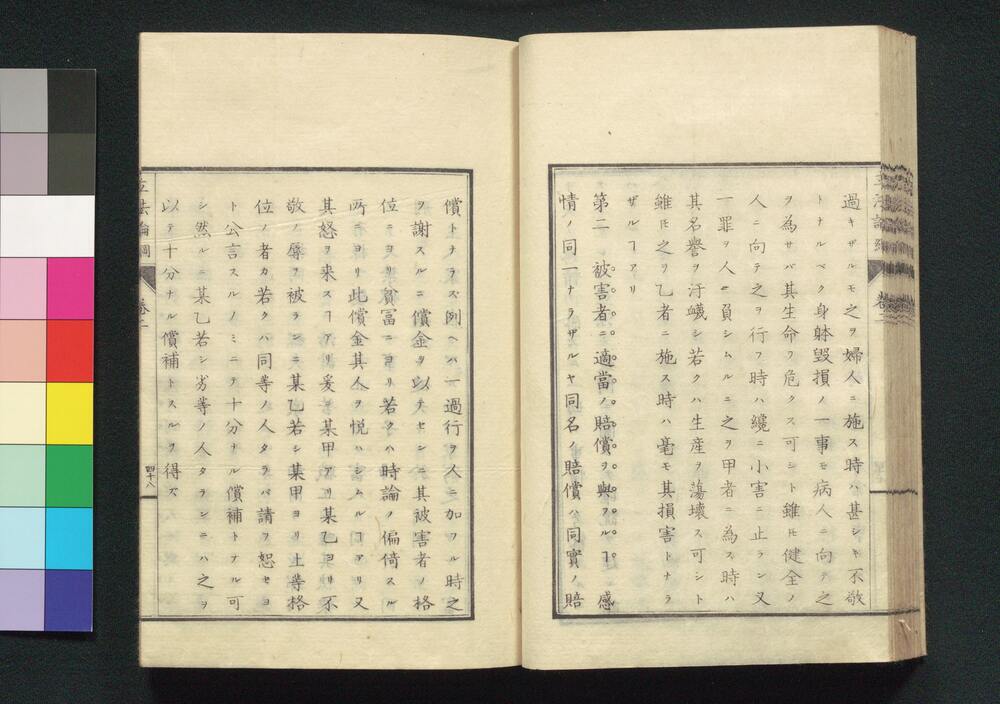 過キザルモ之ヲ婦人ニ施ス時ハ甚シキ不敬
トナルベク身躰毀損ノ一事モ病人ニ向テ之
ヲ為サバ其生命ヲ危クス可シト雖𪜈健全ノ
人ニ向テ之ヲ行フ時ハ纔ニ小害ニ止ラン又
一罪ヲ人ニ員シムルニ之ヲ甲者ニ為ス時ハ
其名譽ヲ汙衊シ若クハ生産ヲ蕩壊ス可シト
雖𪜈之ヲ乙者ニ施ス時ハ毫モ其損害トナラ
ザルヿアリ
第二 被害者ニ適當ノ賠償ヲ與フルヿ 感
情ノ同一ナラザルヤ同名ノ賠償ハ同實ノ賠
償トナラズ例ヘハ一過行ヲ人ニ加フル時之
ヲ謝スルニ償金ヲ以テセンニ其被害者ノ格
位ニヨリ貧冨ニヨリ若クハ時論ノ偏倚スル
所ニヨリ此償金其人ヲ悦ハシムルヿアリ又
其怒ヲ来スヿアリ爰ニ某甲アリ某乙ヨリ不
敬ノ辱ヲ被ランニ某乙若シ某甲ヨリ上等格
位ノ者カ若クハ同等ノ人タラバ請フ恕セヨ
ト公言スルノミニテ十分ナル償補トナル可
シ然ルニ某乙若シ劣等ノ人タランニハ之ヲ
以テ十分ナル償補トスルヲ得ズ
立法論綱 卷二 四十八